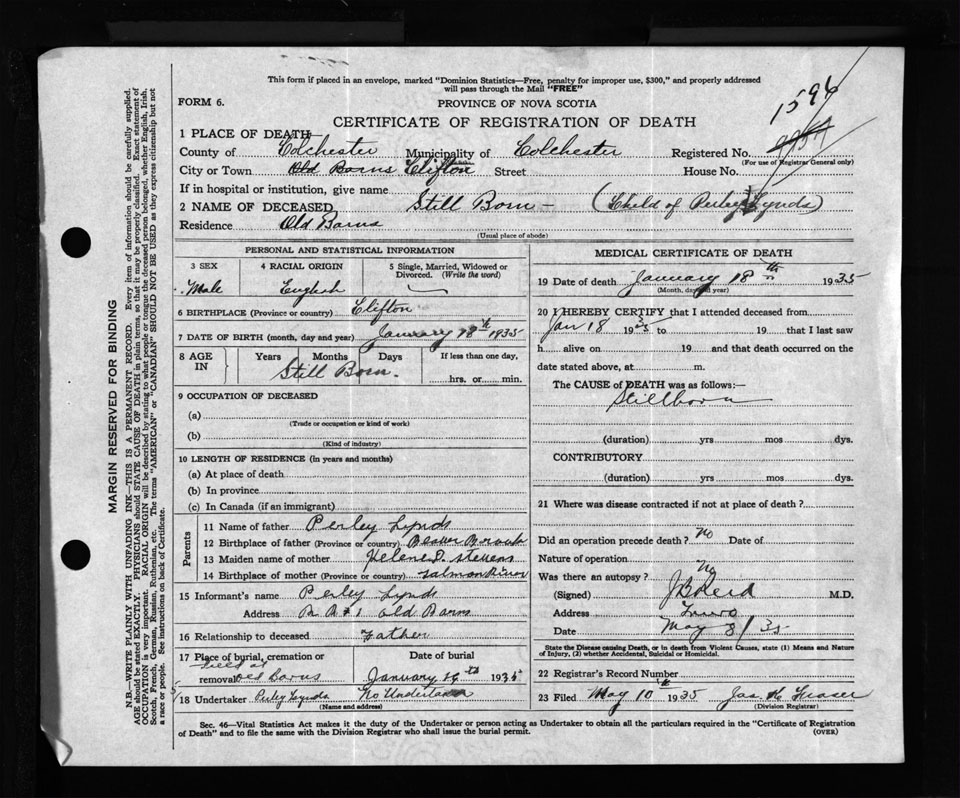 This form if placed in an envelope, marked "Dominion Statistics—Free, penalty for improper use, $300," and properly addressed
will pass through the Mail "FREE"
FORM 6.
PROVINCE OF NOVA SCOTIA
1594
CERTIFICATE OF REGISTRATION OF DEATH
1 PLACE OF DEATH—
County of Colchester Municipality of Colchester Registered No.
(For use of Registrar General only)
City or Town Old Barns Clifton Street House No.
If in hospital or institution, give name
2 NAME OF DECEASED Still Born — (Child of Perley Lynds)
Residence Old Barns
(Usual place of abode)
PERSONAL AND STATISTICAL INFORMATION
3 SEX 4 RACIAL ORIGIN 5 Single, Married, Widowed or Divorced. (Write the word)
Male English
6 BIRTHPLACE (Province or country) Clifton
7 DATE OF BIRTH (month, day and year) January 18th 1935
8 AGE IN Years Months Days If less than one day,
Still Born. hrs. or min.
9 OCCUPATION OF DECEASED
(a)
(Trade or occupation or kind of work)
(b)
(Kind of industry)
10 LENGTH OF RESIDENCE (in years and months)
(a) At place of death
(b) In province
(c) In Canada (if an immigrant)
Parents
11 Name of father Perley Lynds
12 Birthplace of father (Province or country) Beaver Brook
13 Maiden name of mother Helene D. Stevens
14 Birthplace of mother (Province or country) Salmon River
15 Informant's name Perley Lynds
Address R.R # 1 Old Barns
16 Relationship to deceased Father
17 Place of burial, cremation or removal Old Barns
Date of burial January 1935
18 Undertaker Perley Lynds No Undertaker
(Name and address)
MEDICAL CERTIFICATE OF DEATH
19 Date of death January 18th 1935
(Month, day and year)
20 I HEREBY CERTIFY that I attended deceased from
Jan 18 1935 to 19 that I last saw
h alive on 19 and that death occurred on the
date stated above, at m.
The CAUSE of DEATH was as follows:—
Stillborn
(duration) yrs mos dys.
CONTRIBUTORY
(duration) yrs mos dys.
21 Where was disease contracted if not at place of death?
Did an operation precede death? No Date of
Nature of operation
Was there an autopsy? No
(Signed) M.D.
Address Truro
Date May 8/35
State the Disease causing Death, or in death from Violent Causes, state (1) Means and Nature
of Injury, (2) whether Accidental, Suicidal or Homicidal.
22 Registrar's Record Number
23 Filed May 10th 1935 Jas. K Fraser
(Division Registrar)
Sec. 46—Vital Statistics Act makes it the duty of the Undertaker or person acting as Undertaker to obtain all the particulars required in the "Certificate of Registration
of Death" and to file the same with the Division Registrar who shall issue the burial permit.
(OVER)
MARGIN RESERVED FOR BINDING
N.B.—WRITE PLAINLY WITH UNFADING INK—THIS IS A PERMANENT RECORD. Every item of information should be carefully supplied.
AGE should be stated EXACTLY. PHYSICIANS should STATE CAUSE OF DEATH in plain terms, so that it may be properly classified. Exact statement of
OCCUPATION is very important. RACIAL ORIGIN will be described by stating to what people or tongue the deceased person belonged, whether English, Irish,
Scotch, French, German, Russian, Ruthenian, etc. The terms "AMERICAN" or "CANADIAN" SHOULD NOT BE USED as they express citizenship but not
a race or people. See instructions on back of Certificate.